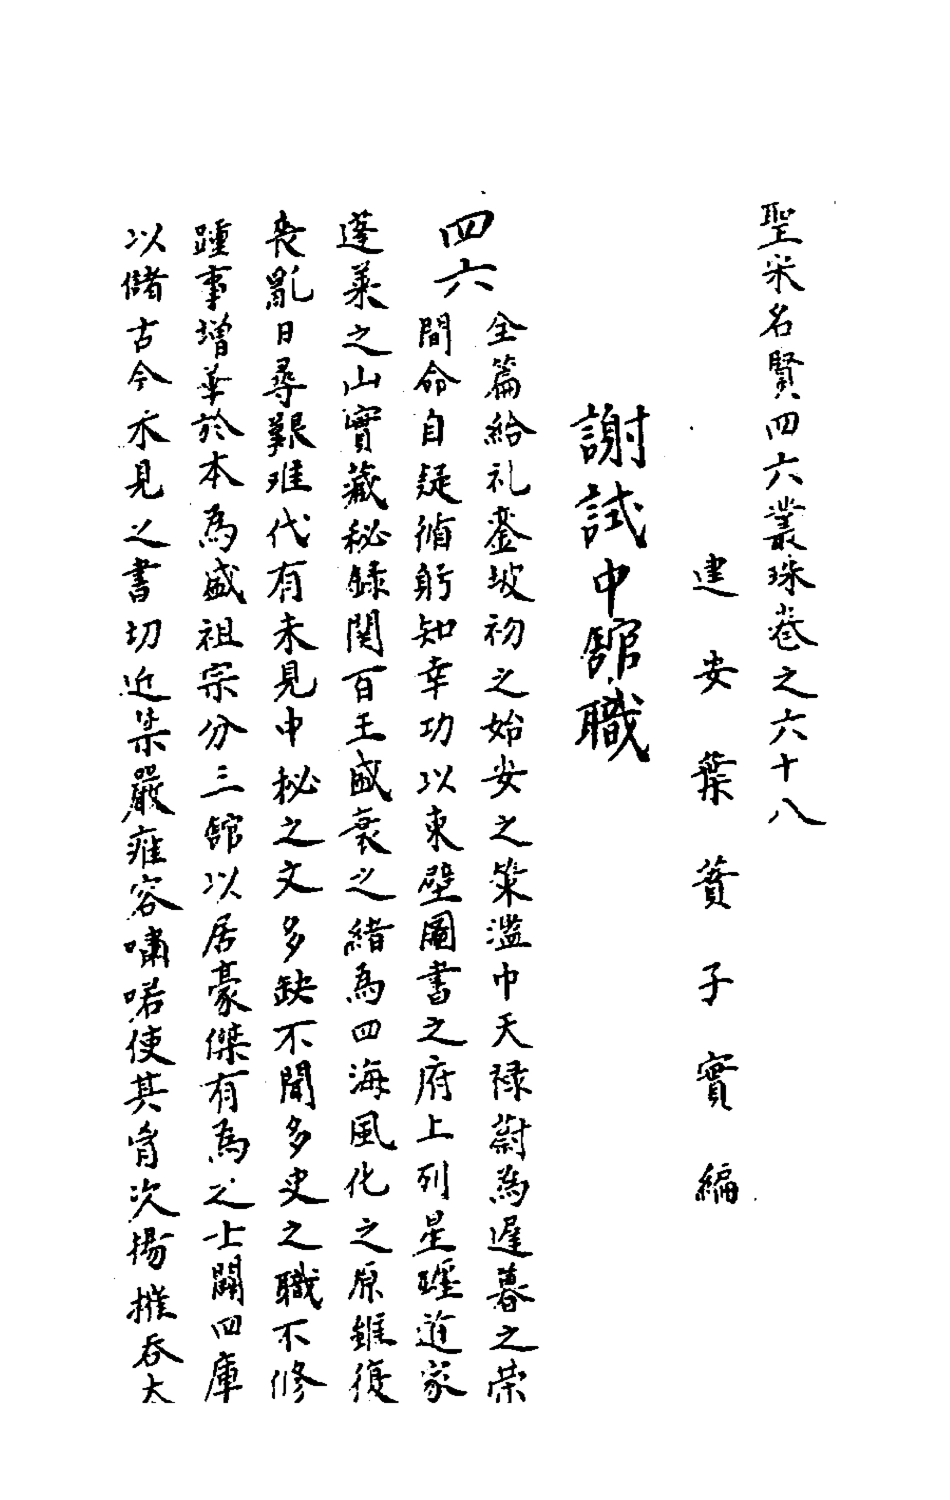 聖宋名賢四六叢珠卷之六十八
建安葉蕡子實編
謝試中舘職
四六
全篇給礼鑾坡初之始安之策濫巾天禄蔚為遲暮之荣
間命自疑循躬知幸功以東壁圖書之府上列星躔道家
蓬萊之山實藏秘録関百王盛衰之緒為四海風化之原雖復
丧亂日尋艱难代有未見中秘之文多缺不聞多史之職不修
踵事增華於本為盛祖宗分三舘以居豪傑有為之士闢四庫
以儲古今未見之書切近禁嚴雍容嘯喏使其胥次揚摧吞太